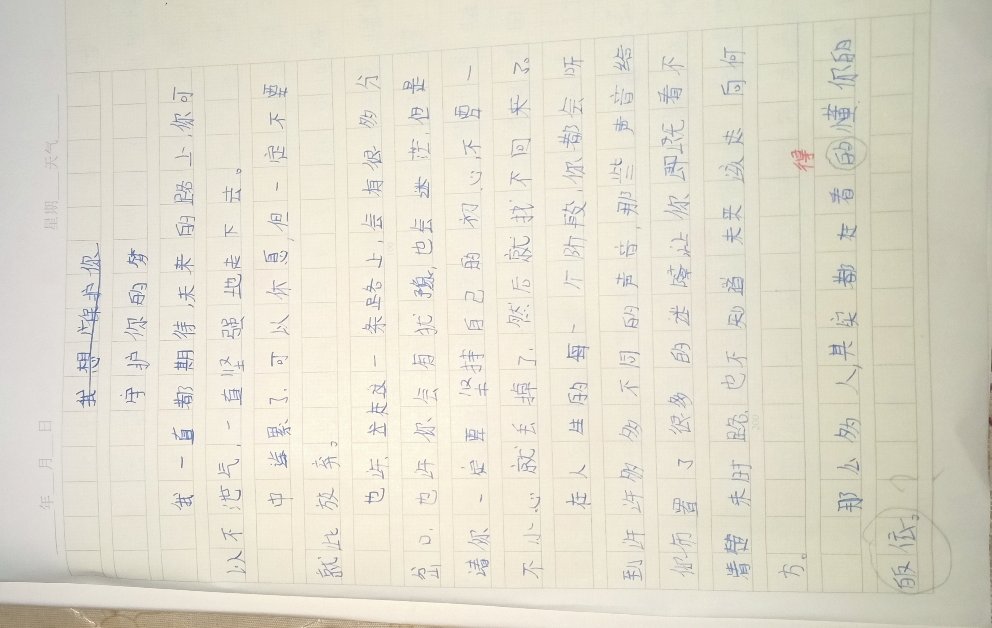 年 月 日 星期 天气
我想保护你
守护你的梦
我一直都期待,未来的路上,你可
以不泄气,一直坚强地走下去。
中途累了,可以休息,但一定不要
就此放弃。
也许,在这一条路上,会有很多分
岔口,也许你会有犹豫,也会迷茫,但是
请你一定要坚持自己的初心,不要一
不小心就丢掉了,然后就找不回来了。
在人生的每一个阶段,你都会听
到许许多多不同的声音,那些声音给
你布置了很多的迷障让你即看不
清未时路,也不知道未来该走向何
方。
得
那么多人,其实都在看的懂,你的
低。?